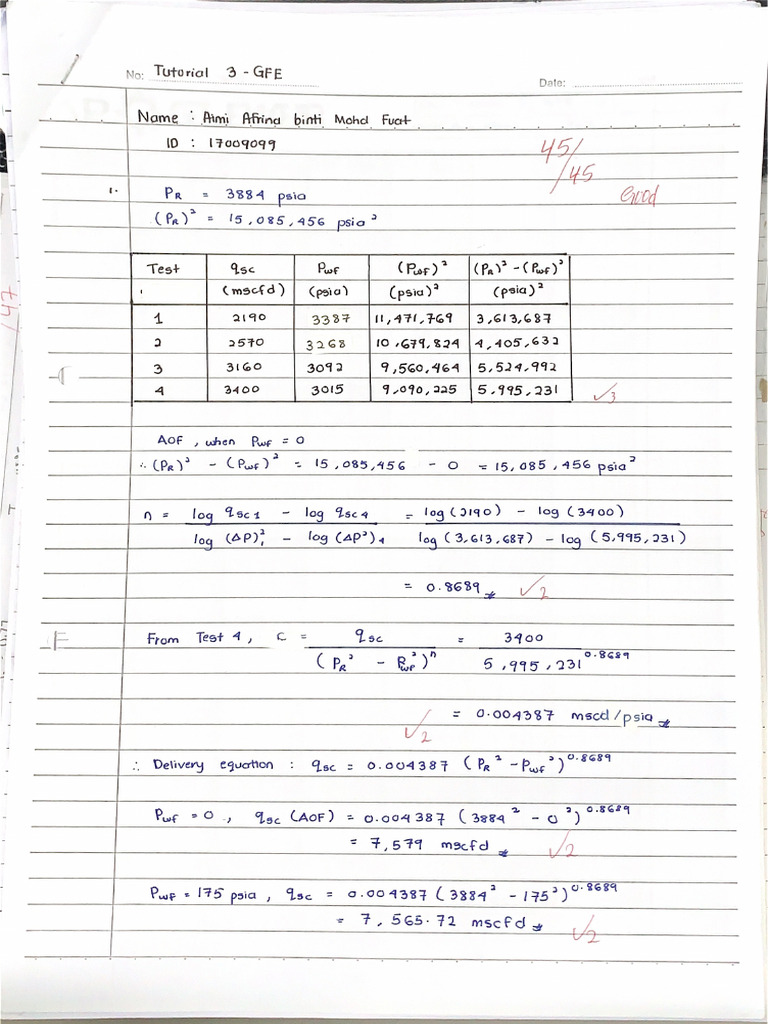 No: Tutorial 3 - GFE
Date:
Name : Aimi Afrina binti Mohd Fuat
ID : 17009099
45/
/45
Good
1. PR = 3884 psia
(PR)² = 15,085,456 psia²
Test qsc Pwf (Pwf)² (PR)² - (Pwf)²
(mscfd) (psia) (psia)² (psia)²
1 2190 3387 11,471,769 3,613,687
2 2570 3268 10,679,824 4,405,632
3 3160 3092 9,560,464 5,524,992
4 3400 3015 9,090,225 5,995,231
✓3
AOF, when Pwf = 0
∴ (PR)² - (Pwf)² = 15,085,456 - 0 = 15,085,456 psia²
n = log qsc1 - log qsc4 = log(2190) - log(3400)
log (ΔP)²₁ - log (ΔP²)₄ log(3,613,687) - log(5,995,231)
= 0.8689 ✓2
From Test 4, C = qsc = 3400
(PR² - Pwf²)ⁿ 5,995,231^0.8689
= 0.004387 mscd/psia
✓2
∴ Delivery equation : qsc = 0.004387 (PR² - Pwf²)^0.8689
Pwf = 0, qsc (AOF) = 0.004387 (3884² - 0²)^0.8689
= 7,579 mscfd ✓2
Pwf = 175 psia, qsc = 0.004387 (3884² - 175²)^0.8689
= 7,565.72 mscfd ✓2